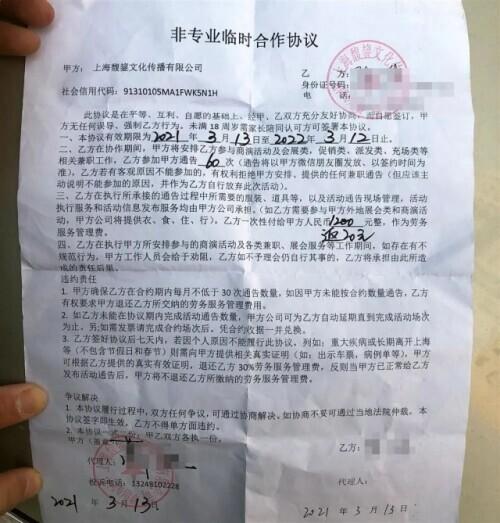 非专业临时合作协议
甲方：上海馥鋆文化传播有限公司
乙 方：
社会信用代码：91310105MA1FWK5N1H
身份证号码：
电 话：
此协议是在平等、互利、自愿的基础上，经甲、乙双方充分友好协商，而自愿签订，甲
方无任何误导、强制乙方行为，未满 18 周岁需家长陪同认可方可签署本协议。
一、本协议有效期限为2021 年 3 月 13 日至 2022 年 3 月 12 日止。
二、在协作期间，甲方将安排乙方参与商演活动及会展类、促销类、派发类、充场类等
相关兼职工作，乙方参加甲方通告 60 次（通告将以甲方微信朋友圈发放、以签约时间为
准），乙方若有客观原因不能参加的，有权利拒绝甲方安排、提供的任何兼职通告（但应该主
动说明不能参加的原因，并作为乙方自行放弃此次活动）。
三、乙方在执行所承接的通告过程中所需要的服装、道具等，以及活动通告现场管理，活动
执行服务和活动信息发布服务均由甲方公司承担。（如乙方需要参与甲方外地展会类和商演活
动，甲方公司将提供衣、食、住、行），乙方一次性付给甲方人民币 1200 元整，作为劳务
服务管理费。
返20元
四、乙方在执行甲方所安排参与的商演活动及各类兼职、展会服务等工作期间，如存在有不
规范行为，甲方工作人员会给予劝阻，乙方如不予理会仍自行其事的，乙方将承担由此所造
成的责任后果。
违约责任
1. 甲方确保乙方在合约期内每月不低于 30 次通告数量，如因甲方未能按合约数量通告，乙方
有权要求甲方退还乙方所交纳的劳务服务管理费用。
2. 如乙方未能在协议期内完成活动通告数量，甲方公司可为乙方自动延期直到完成活动场次
为止，另：如需发票请完成合约场次后，凭合约收据一并兑换。
3. 乙方签好协议后七天内，若因个人原因不能履行此协议，列如：重大疾病或长期离开上海
等（不包含节假日和春节）则需向甲方提供相关真实证明（如：出示车票，病例单等），甲方
可根据乙方提供的真实有效证明，退还乙方 30%劳务服务管理费，反则当甲方已正常给乙方
发布活动通告后，甲方将不退还乙方所缴纳的劳务服务管理费。
争议解决
1. 本协议履行过程中，双方任何争议，可通过协商解决。如协商不妥可通过当地法院仲裁。本
协议签字即生效，乙方不得单方面违约。
2. 本协议一式二份，甲乙双方各执一份。
甲方（盖章
乙方：
代理人：
投诉电话：13248102228
2021 年 3 月 13 日
2021 年 3 月 13 日